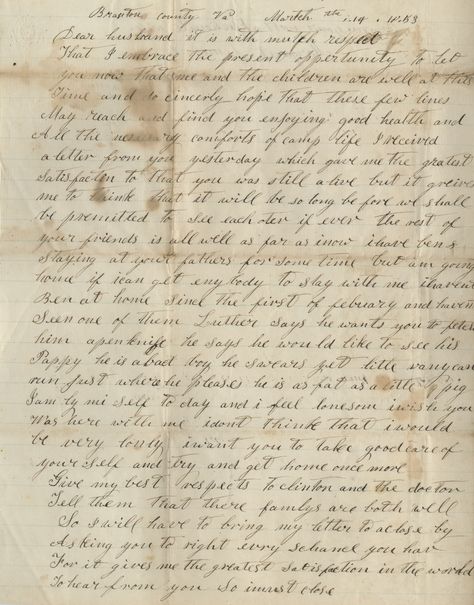 Braxton county Va March the 14. 1863
Dear husband it is with mutch respect
That I embrace the present oppertunity to let
you now that me and the children are well at this
Time and do cincerly hope that these few lines
May reach and find you enjoying good health and
All the necesary comforts of camp life I received
a letter from you yesterday which gave me the gratest
Satisfacton to that you was still alive but it greives
me to think that it will be so long be fore we shall
be premitted to see each oder if ever the rest of
your friends is all well as far as inow ihave bens
Staying at your fathers for some time but am going
home if ican get eny body to stay with me ihavent
Ben at home since the first of febuary and havent
Seen one of them Luther says he wants you to fetch
him apenknife he says he would like to see his
Pappy he is abad boy he swears yet little vany can
run Just where he pleases he is as fat as a little pig
Iam by mi self to day and i feel lonesom iwish you
Was here with me idont think that iwould
be very lonly iwant you to take good care of
your self and try and get home once more
Give my best respects to clinton and the doctor
Tell them that there familys are both well
So I will have to bring my letter to aclose by
Asking you to right evry schance you hav
For it gives me the greatest satisfaction in the world
To hear from you So imust close